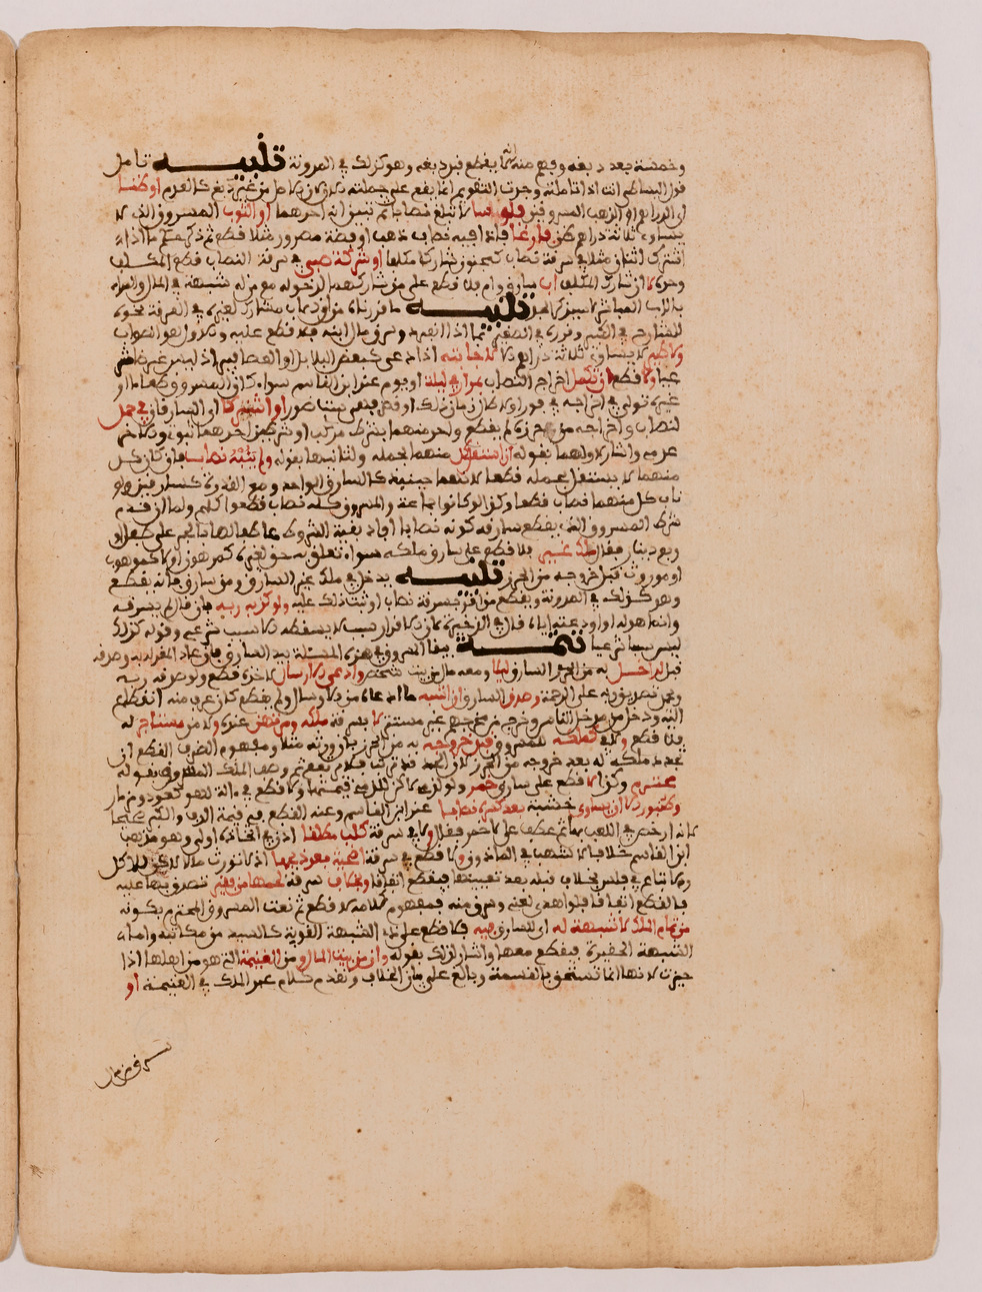 وخمسة بعد دبغه وفهم منه أنه لا يقطع قبل دبغه وهو كذلك في المدونة تنبيه تأمل
قول البساطي أنت إذا تأملته وجدت التقويم إنما يقع على جملته لا على من غير دبغ كالعدم أو ظنا
أي الدراهم أو الذهب المسروقين فلوسا لا تبلغ نصابا ثم تبين أنه أحدهما أو الثوب المسروق الذي لا
يساوي ثلاثة دراهم ظن فارغا فإذا فيه نصاب ذهب أو فضة مصرور مثلا قطع ثم ذكر حكم ما إذا
اشترك اثنان مثلا في سرقة نصاب كمجنون شارك مكلفا أو شركة صبي في سرقة النصاب قطع المكلف
وحده لا إن شارك المكلف أب سارق أو أم فلا قطع على من شاركهما لدخوله مع من له شبهة في المال والمراد
بالأب المباشر تنبيه ما قررناه من أن صاحب مشارك لغيره في السرقة نحوه
للشارح في الكبير وقرره في الصغير بما إذا انفرد وسرق مال ابنه فلا قطع عليه والأول هو الصواب
ولا طير لا يساوي ثلاثة دراهم إلا لإجابته إذا دعي كبعض البلابل أو العصافير إذ ليس غرضا شر
عيا ولا قطع إن تكمل إخراج النصاب بمرار في ليلة أو يوم عند ابن القاسم سواء كان المسروق طعاما أو
غيره تولى إخراجه في فور أو لا كان زمان ذلك أو قصر فهي ست صور أو اشتركا أي السارقان في حمل
لنصاب وإخراجه من حرزه لم يقطع واحد منهما بشرط مركب أو شرطين أحدهما ثبوتي والآخر
عدمي وأشار لأولهما بقوله إن استقل كل منهما بحمله ولثانيهما بقوله ولم ينبه نصاب فإن كان كل
منهما لا يستقل بحمله قطعا لأنهما حينئذ كالسارق الواحد ومع القدرة كسارقين ولو
ناب كل منهما نصاب قطعا وكذا لو كانوا جماعة والمسروق كله نصاب قطعوا كلهم ولما قدم
شرط المسروق الذي يقطع سارقه كونه نصابا أفاد بقية الشروط
ربع دينار فقال ملك غير فلا قطع على سارق ملكه سواء تعلق به حق لغيره كمرهون أو لا كموهوب
أو موروث قبل خروجه من الحرز تنبيه يدخل في ملك غير السارق ومن سارق فإنه يقطع
وهو كذلك في المدونة ويقطع من أقر بسرقة نصاب أو ثبت ذلك عليه ولو كذبه ربه بأن قال لم يسرقه
وإنما هو له أو أودعته إياه قال في الذخيرة لأن الإقرار سبب لا يسقطه إلا سبب شرعي وقوله كذلك
ليس سببا شرعيا تتمة يبقى المسروق في هذه المسألة بيد السارق فإن عاد المقر له به وصدقه
قبل أو أخذ به من الحرز السارق ليلا ومعه مال من بيت شخص وادعى الإرسال لأخذه قطع ولو صدقه ربه
وصدق السارق إن أشبه ما ادعاه من الإرسال ولم يقطع كأن عرف منه انقطاع
إليه ودخل من مدخل الناس وخرج من مخرجهم غير مستتر لا بسرقة ملكه ومرتهن عنده ولا من مستأجر له
فلا قطع كملكه للمسروق قبل خروجه به من الحرز بأن ورثه مثلا ومفهوم الظرف القطع إن
تجدد ملكه له بعد خروجه من الحرز
محترم وكذا لا قطع على سارق خمر ولو لذمي لكن للذمي قيمتها ولا قطع في آلة لهو كعود ومزمار
وطنبور إلا أن يساوي خشبه بعد كسره نصابا عند ابن القاسم وعنه القطع في قيمة الدف والكبر صحيحا
لأنه أرخص في اللعب بهما ثم عطف على خمر فقال ولا في سرقة كلب مطلقا أذن في اتخاذه أو لم وهو مذهب
ابن القاسم خلافا لأشهب في المأذون ولا قطع في سرقة أضحية بعد ذبحها إذ لا تورث مالا
ولا تباع في فلس بخلاف قبله بعد تعيينها فيقطع اتفاقا وبخلاف سرقة لحمها من فقير تصدق بها عليه
فالقطع اتفاقا فلو أهدي لغني وسرق منه فمفهوم كلامه لا قطع ثم نعت المسروق المحترم بكونه
من تمام الملك لا شبهة له أي للسارق فيه فلا قطع على ذي الشبهة القوية كالسيد من مكاتبه وأما
الشبهة الحقيرة فيقطع معها وأشار لذلك بقوله وإن من بيت المال أو من الغنيمة التي هو من أهلها إذا
حيزت لأنها إنما تستحق بالقسمة وبالغ على ما في الخلاف وتقدم كلام عبد الملك في الغنيمة أو
سرق من مال